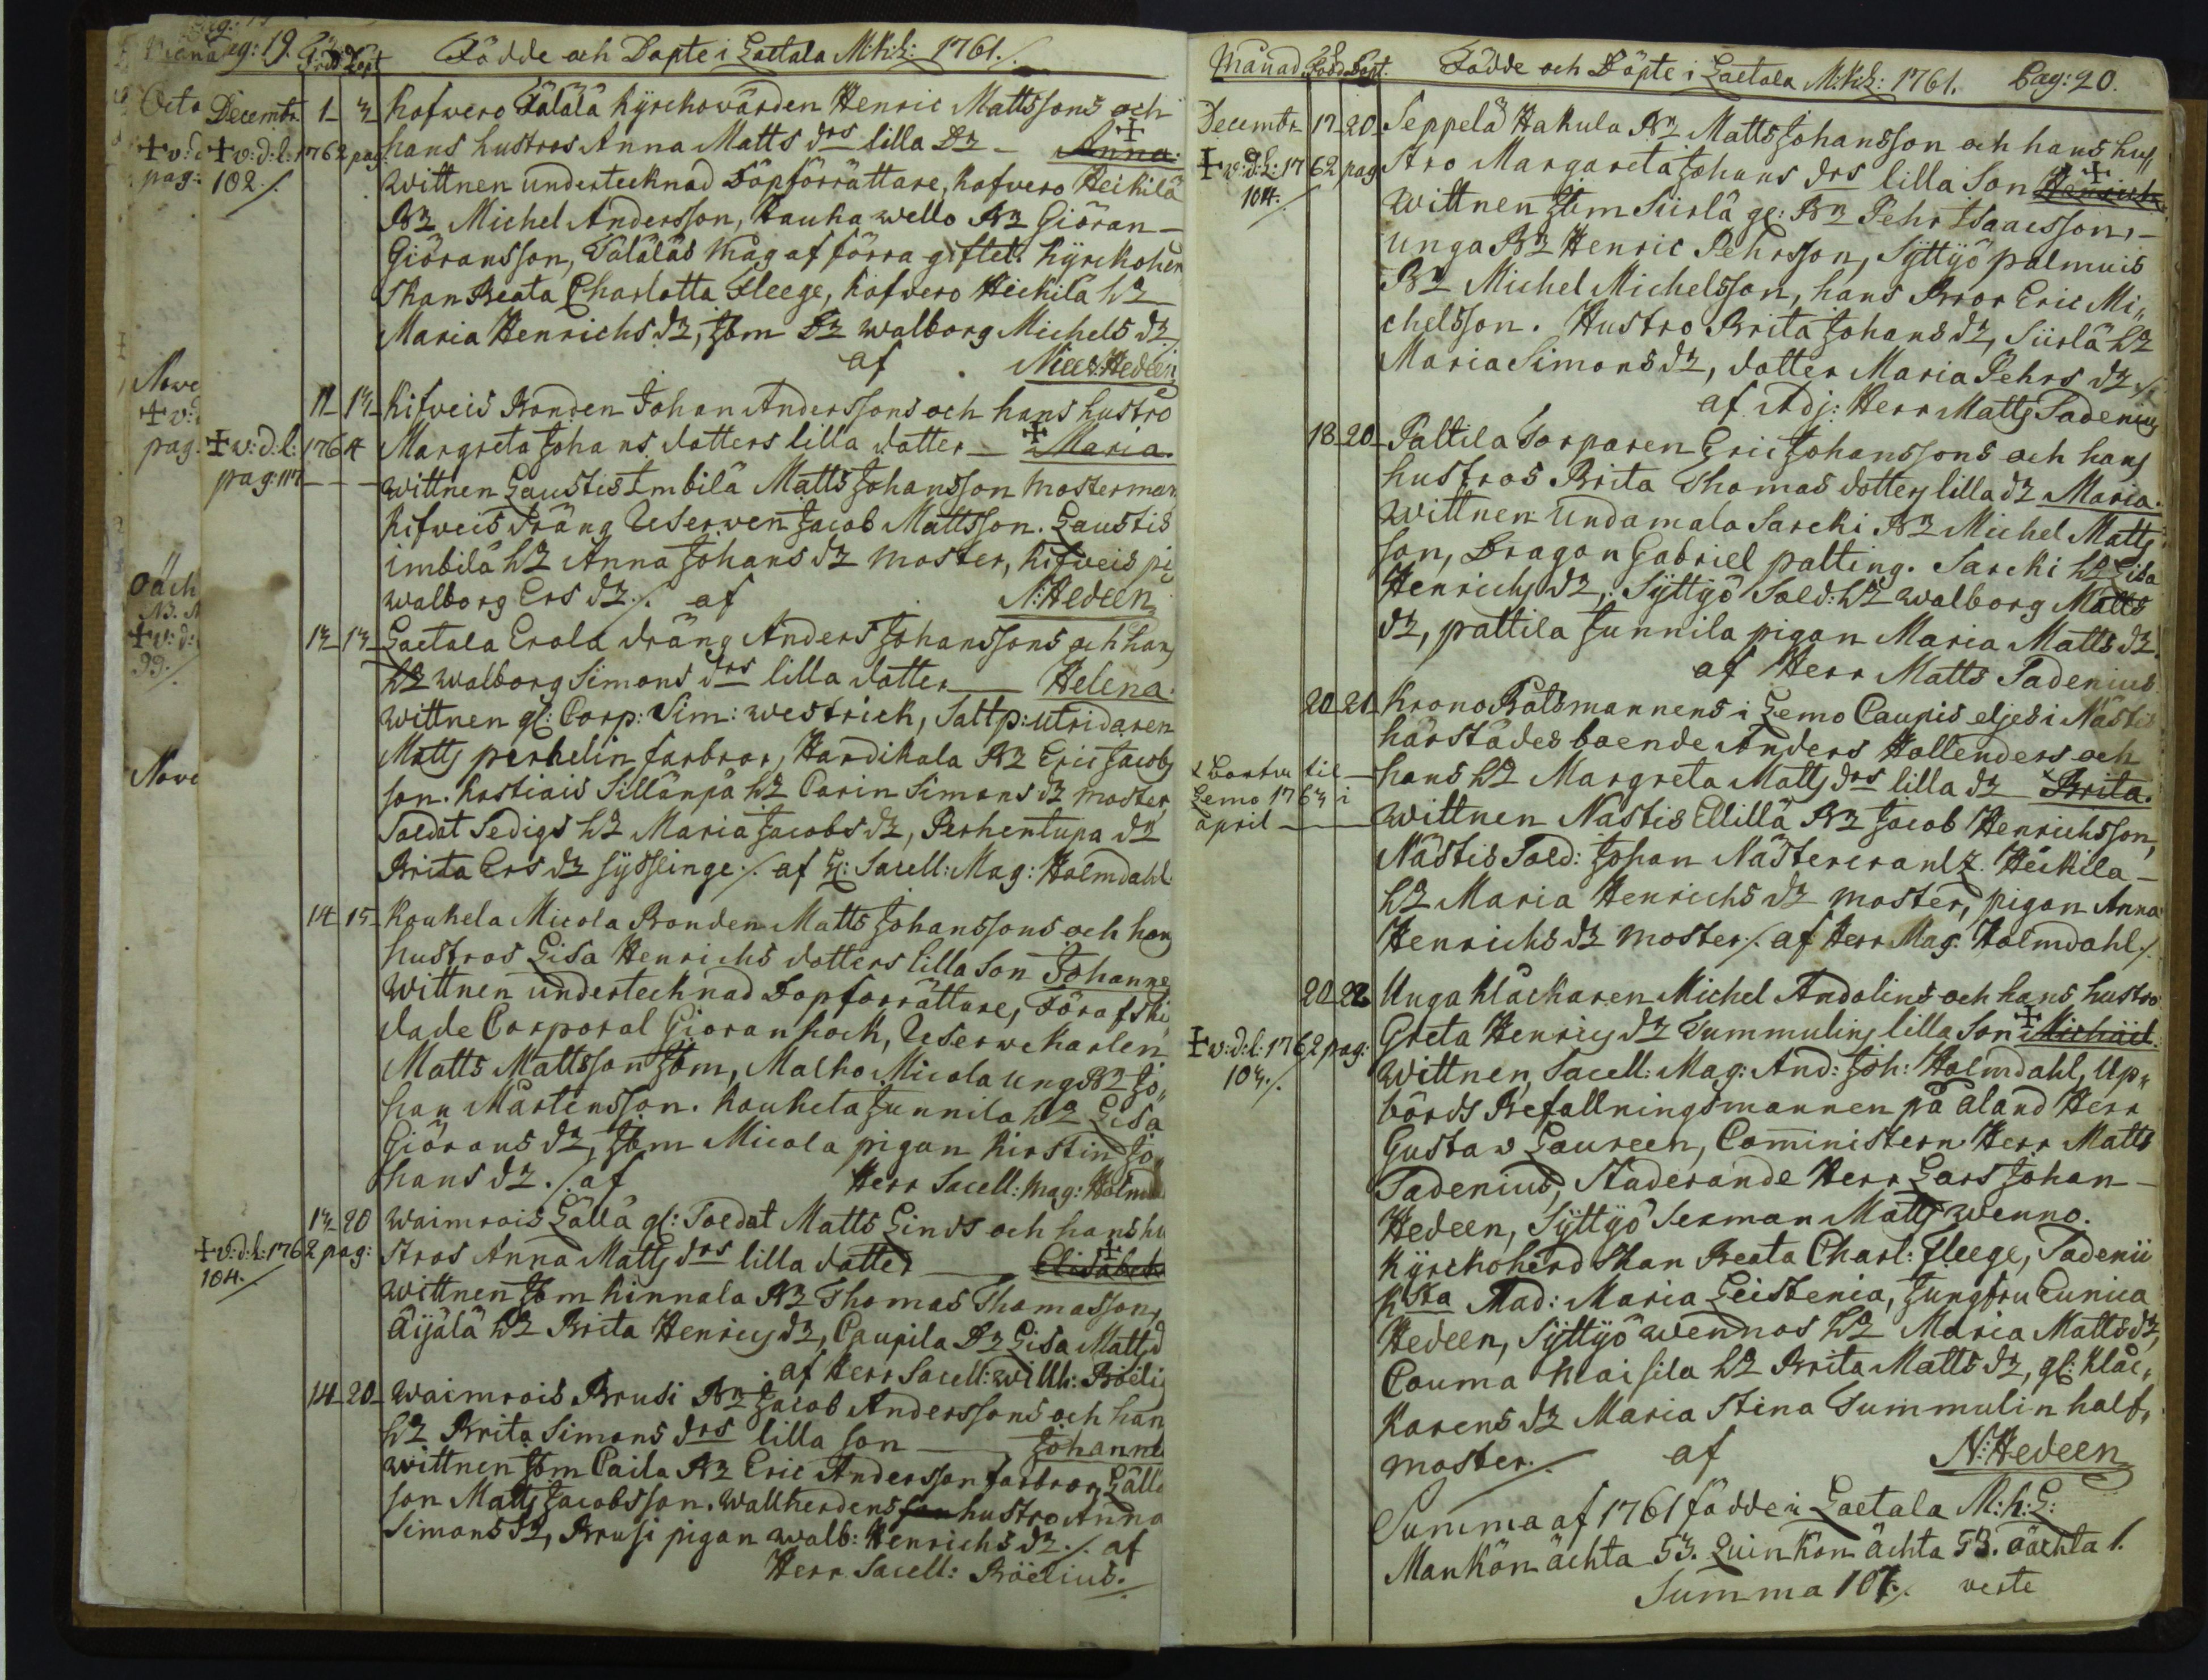 Pag: 19. Född Döpt Födde och Döpte i Laetala M:K:L: 1761.
Decembr. 1 3 Kofwero Tälälä Kyrckowärden Henric Mattssons och
✝ v: d: l: 1762 pag: hans hustros Anna Matts drs lilla Dr Anna.
102. Wittnen undertecknad Döpförrättare, Kofwero Heickilä
Br Michel Andersson, Kauka wello Br Giöran
Giöransson, Täläläs Måg af förra giftet. Kyrckoher
skan Beata Charlotta Fleege, Kofwero Heickilä h
Maria Henrichs dr, Jbm Dr Walborg Michels dr
af Nils: Hedeen
11 13 Kifweis Bonden Johan Anderssons och hans hustro
✝ v: d: l: 1764 Margreta Johans dotters lilla dotter Maria.
pag: 117 Wittnen Laustis Imbilä Matts Johansson Mosterman
Kifweis dräng Reserwen Jacob Mattsson. Laustis
imbilä h Anna Johans dr Moster, Kifweis pi
Walborg Ers dr. af N: Hedeen
13 13 Laetala Erola dräng Anders Johanssons och hans
h Walborg Simons drs lilla dotter Helena.
Wittnen gl: Corp: Sim: Westrick, Saltp: utridaren
Matts perhelin farbror, Handikala Br Eric Jacobs
son. Kostiais Sillänpä h Carin Simons dr Moster,
Soldat Sedigs h Maria Jacobs dr, Perhentupa dr
Brita Ers dr syslinge. af H: Sacell: Mag: Holmdahl
14 15 Koukela Micola Bonden Matts Johanssons och hans
hustros Lisa Henrichs dotters lilla Son Johannes
Wittnen undertecknad Döpforrättare, Förafski
dade Corporal Giöran hock, Reserwekarlen
Matts Mattsson Jbm, Malko Micola ung Br Jo
han Mårtensson. Koukela Junnila h Lisa
Giörans dr, Jbm Micola pigan Kirstin Jo
hans dr. af Herr Sacell: Mag: Holmd
13 20 Waimrois Lällä gl: Soldat Matts Linds och hans hu
✝ v: d: l: 1762 pag: stros Anna Matts drs lilla dotter Elisabet
104. Wittnen Jbm hinnala Br Thomas Thomasson,
Äijälä h Brita Henrics dr, Caupila Dr Lisa Matts d
af Herr Sacell: Willh: Böeli
14 20 Waimrois Brusi Br Jacob Anderssons och han
h Brita Simons drs lilla son Johanne
Wittnen Jbm Caila Br Eric Andersson farbror, Lällä
son Matts Jacobsson. Wallherdens hustro Anna
Simons dr, Brusi pigan Walb: Henrichs dr. af
Herr Sacell: Böelius.
Månad Född Döpt. Födde och Döpte i Laetala M:K:L: 1761. Pag: 20.
Decembr 17 20 Seppelä Hakula Br Matts Johansson och hans hu
✝ v: d: l: 1762 pag stro Margareta Johans drs lilla Son Henrich
104. Wittnen Jbm Siirlä gl: Br Pehr Isaacsson,
unga Br Henric Pehrsson, Syttyö palmuis
Br Michel Michelsson, hans Bror Eric Mi
chelsson. Hustro Brita Johans dr, Siirlä h
Maria Simons dr, dotter Maria Pehrs dr.
af Adj: Herr Matts Tadenius
18 20 Paltila Torparen Eric Johanssons och hans
hustros Brita Thomas dotters lilla dr Maria.
Wittnen Undamala Sarcki Br Michel Matts
son, Dragon Gabriel palting. Sarcki h Lisa
Henrichs dr, Syttyö Sold: h Walborg Matts
dr, pattila Junnila pigan Maria Matts dr.
af Herr Matts Tadenius
20 21 Krono Båtsmannens i Lemo Caupis eljes i Nästis
härstädes boende Anders Hollenders och
x bortu til hans h Margreta Matts drs lilla dr x Brita.
Lemo 1763 i Wittnen Nästis Ellilä Br Jacob Henrichsson,
april Nästis Sold: Johan Nästercrantz. Heickila
h Maria Henrichs dr Moster, pigan Anna
Henrichs dr Moster. af Herr Mag: Holmdahl.
20 22 Unga Klåckaren Michel Andolins och hans hustro
✝ v: d: l: 1762 pag: Greta Henrics dr Tummulins lilla Son Michäel.
103. Wittnen, Sacell: Mag: And: Joh: Holmdahl, Up
börds Befallningsmannen på Åland Herr
Gustav Laureen, Comministern Herr Matts
Tadenius, Studerande Herr Lars Johan
Hedeen, Syttyö Sexman Matts Wenno.
Kyrckoherdskan Beata Charl: Fleege, Tadenii
K:sta Mad: Maria Leistenia, Jungfru Eunica
Hedeen, Syttyö Wennos h Maria Matts dr,
Couma Maisila h Brita Matts dr, gl: Klåc
karens dr Maria Stina Tummulin half
moster. af N: Hedeen
Summa af 1761 födde i Laetala M:K:L:
Mankön ächta 53. Quinkön ächta 53. oächta 1.
Summa 107. veste